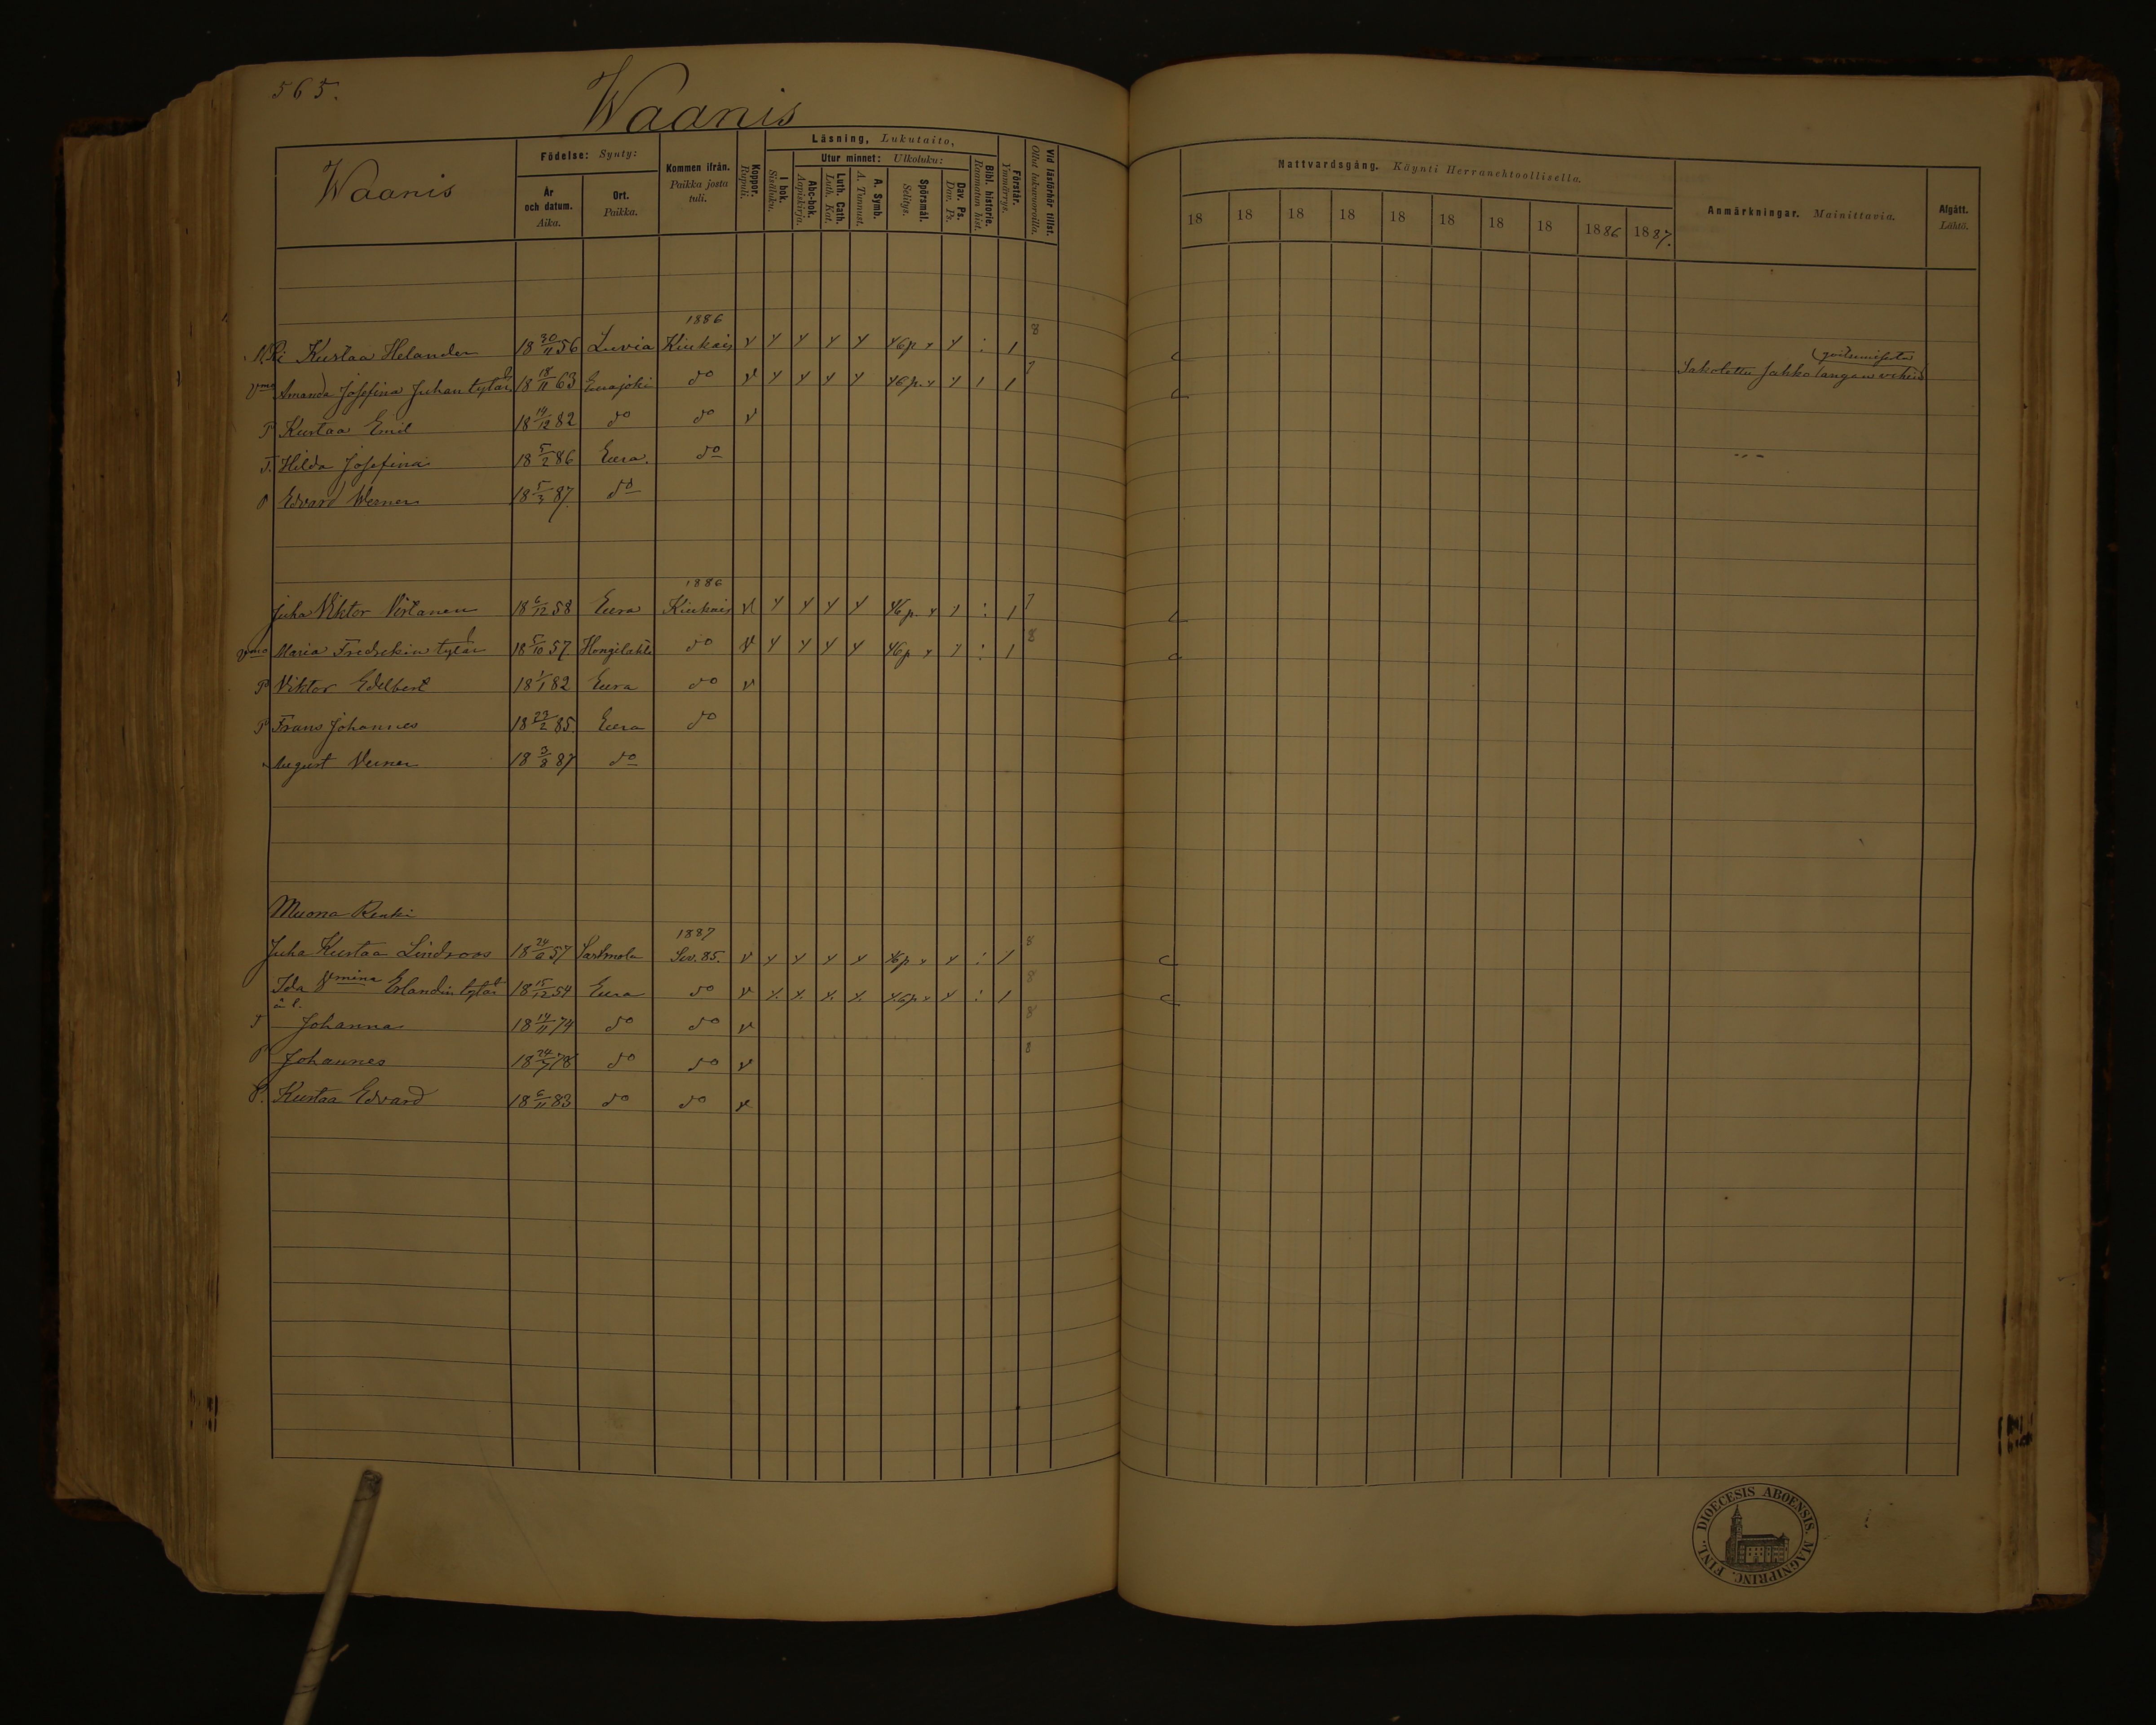 565.
Waanis
Waanis
Födelse: Synty:
År och datum. Aika.
Ort. Paikka.
Kommen ifrån. Paikka josta tuli.
Koppor. Rupuli.
Läsning, Lukutaito,
I bok. Sisäluku.
Utur minnet: Ulkoluku:
Abc-bok. Aapiskirja.
Luth. Cath. Luth. Kat.
A. Symb. A. Tunnust.
Spörsmål. Selitys.
Dav. Ps. Dav. Ps.
Bibl. historie. Raamatun hist.
Förstår. Ymmärrys.
Vid läsförhör tillst. Ollut lukuvuoroilla.
Nattvardsgång. Käynti Herranehtoollisella.
18 18 18 18 18 18 18 18 1886 1887.
Anmärkningar. Mainittavia.
Afgått. Lähtö.
1886
Kustaa Helander 18 30/11 56 Luvia Kiukais v y y y y 46p y y : 1 8
Vmo Amanda Josefina Juhan tytär 18 18/11 63 Eurajoki do v y y y y 46p. y y 1 1 7
Sakotettu
P Kustaa Emil 18 14/12 82 do do v
T. Hilda Josefina 18 5/2 86 Eura. do
P Edvard Werner 18 5/3 87. do
1886
Juha Viktor Virtanen 18 6/12 58 Eura Kiukais v y y y y 46p. y y : 1 7
Vmo Maria Fredrekin tytär 18 5/10 57 Hongilahti do v y y y y 46p y y : 1 8
P Viktor Edelbert 18 1/1 82 Eura do v
P Frans Johannes 18 23/2 85. Eura do
August Verner 18 3/8 87 do
Muona Renki
1887
Juha Kustaa Lindroos 18 24/6 57 Sastmola Siv. 85. v y y y y 46p y y : 1 8
Ida Vmina Erlandin tytär 18 15/12 54 Eura do v y. y. y. y. 46p y y : 1 8
ä. l.
T Johanna 18 14/11 74 do do v 8
P Johannes 18 24/7 78 do do v 8
P. Kustaa Edvard 18 6/11 83 do do v
DIOECESIS ABOENSIS. MAGNIPRINC. FINL.